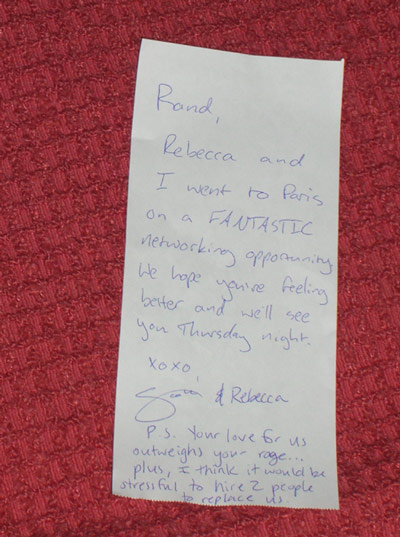 Rand,
Rebecca and
I went to Paris
on a FANTASTIC
networking opportunity
We hope you're feeling
better and we'll see
you Thursday night.
xoxo,
& Rebecca
P.S. Your love for us
outweighs your rage...
plus, I think it would be
stressful to hire 2 people
to replace us